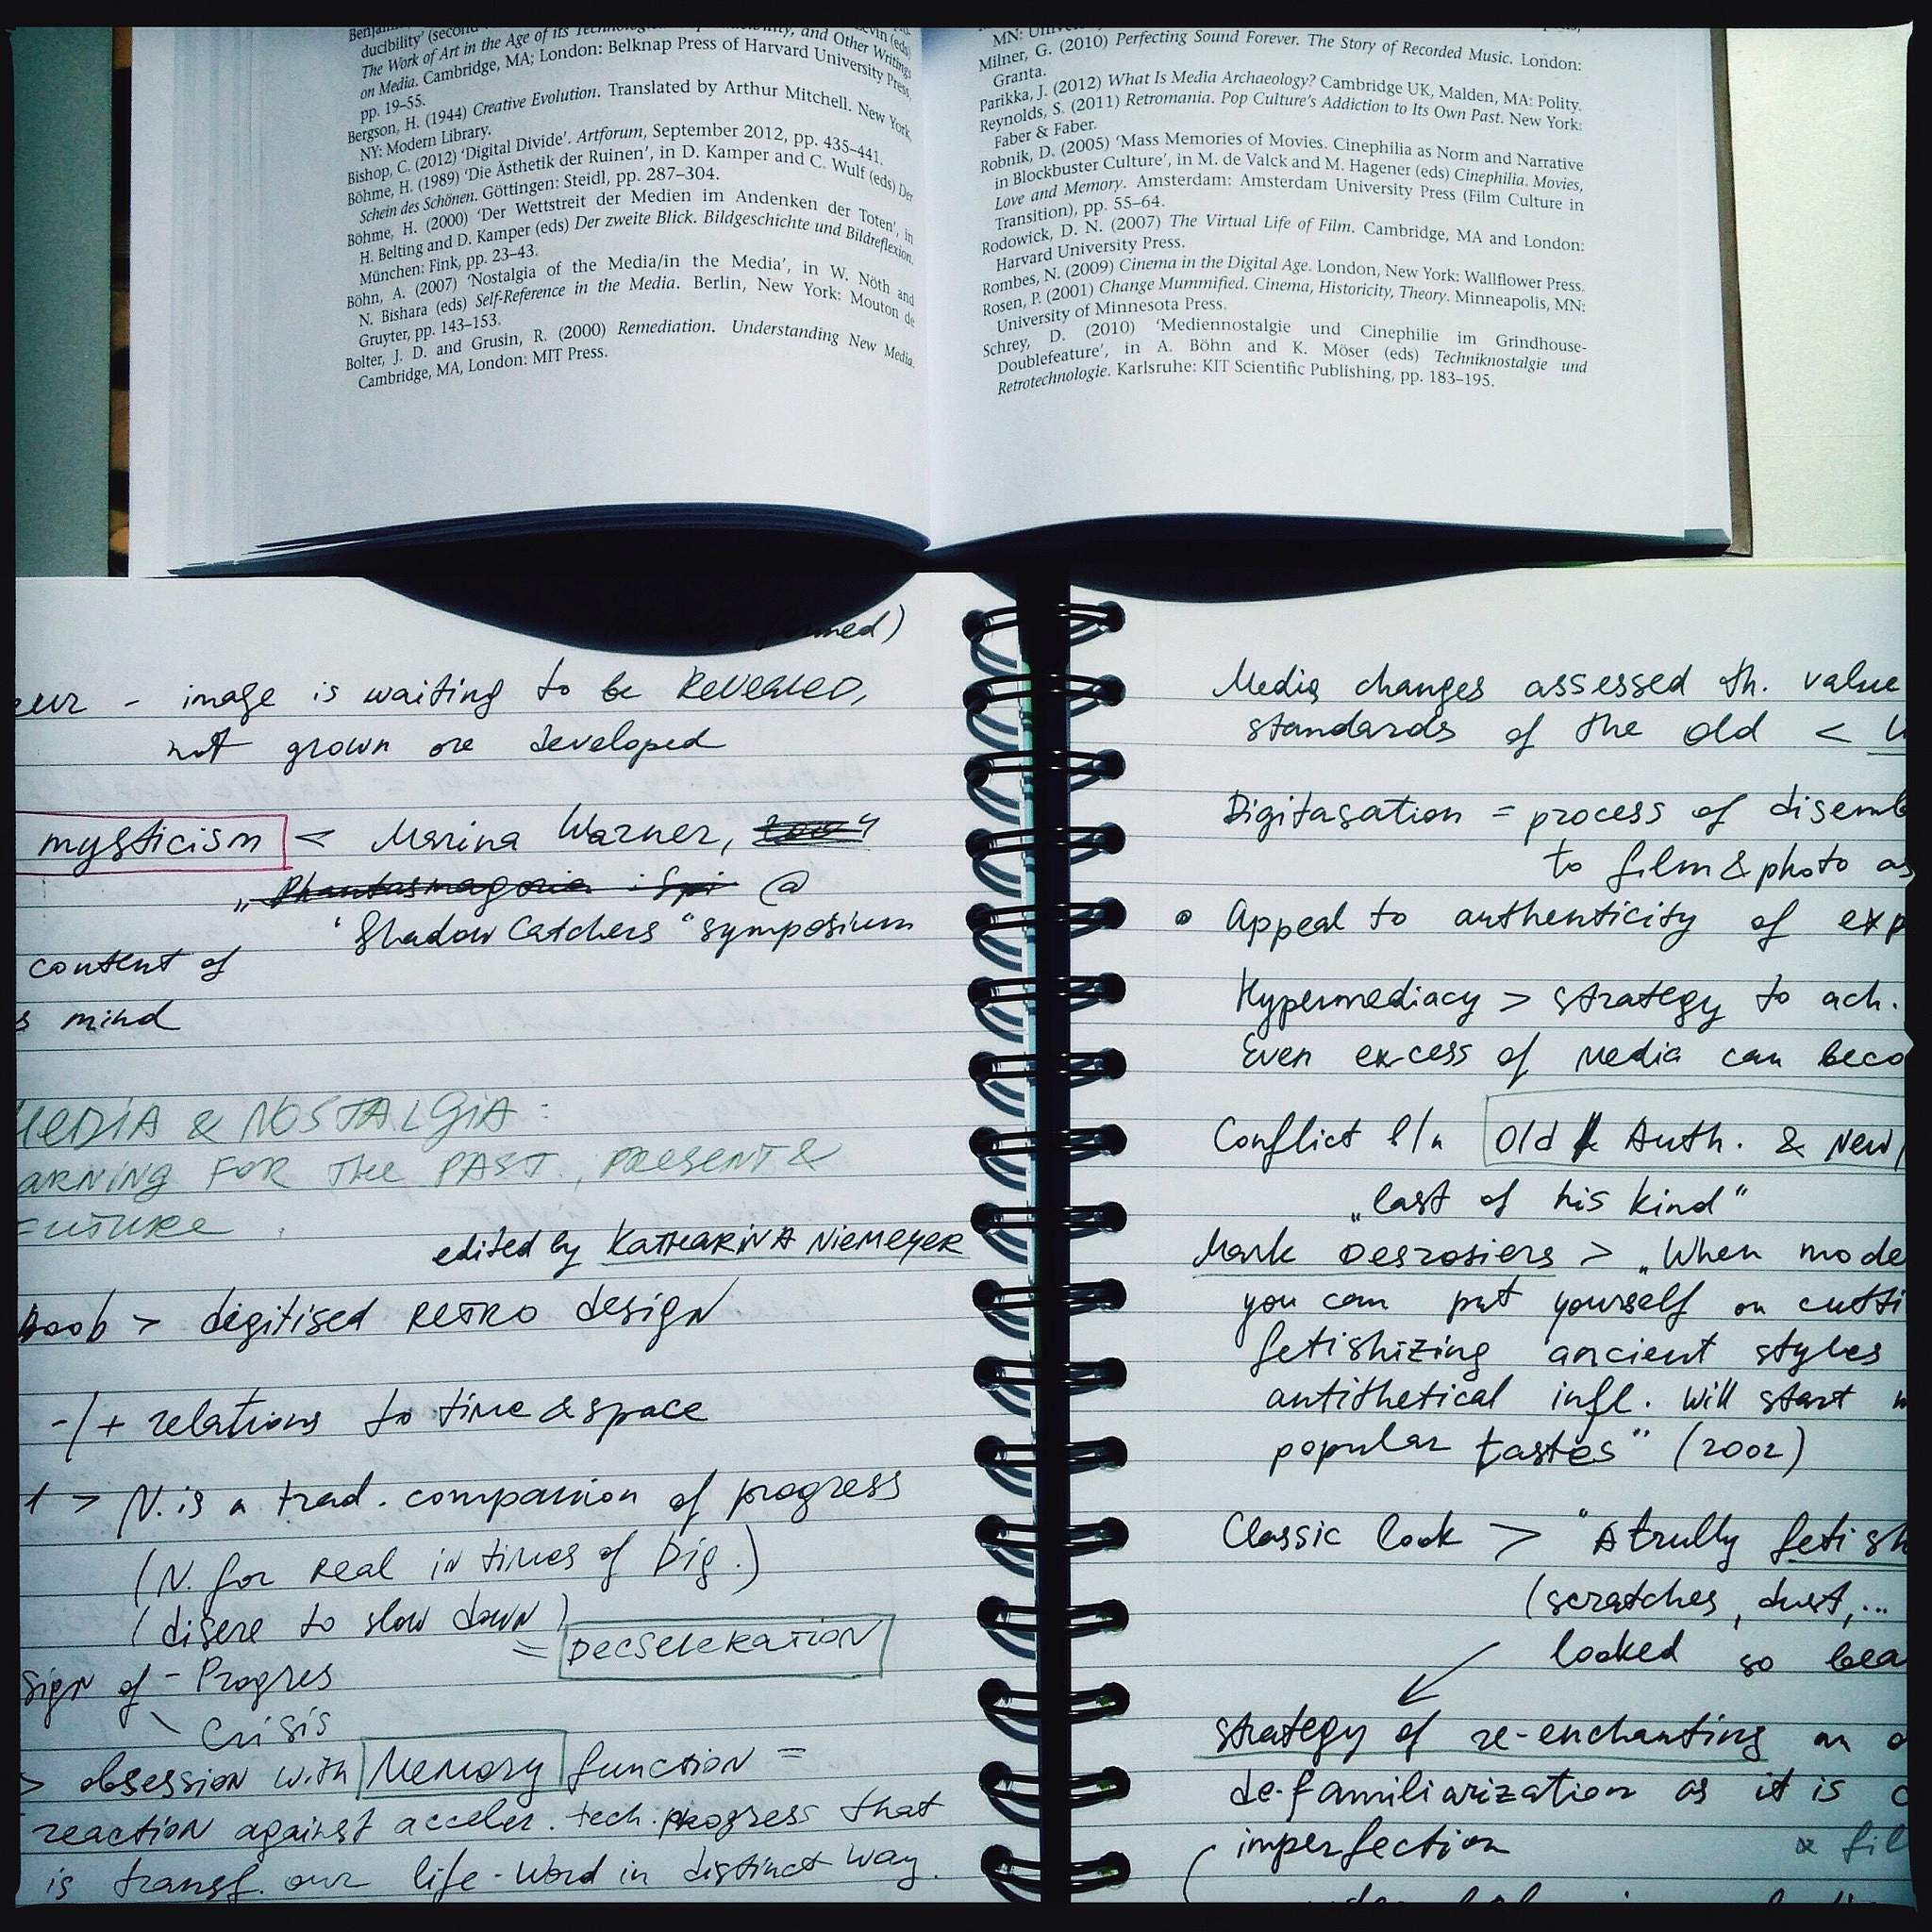 ducibility' (second
The Work of Art in the Age of its Technological and Other Writings
on Media. Cambridge, MA; London: Belknap Press of Harvard University Press,
pp. 19–55.
Bergson, H. (1944) Creative Evolution. Translated by Arthur Mitchell. New York,
NY: Modern Library.
Bishop, C. (2012) 'Digital Divide'. Artforum, September 2012, pp. 435–441.
Böhme, H. (1989) 'Die Ästhetik der Ruinen', in D. Kamper and C. Wulf (eds) Der
Schein des Schönen. Göttingen: Steidl, pp. 287–304.
Böhme, H. (2000) 'Der Wettstreit der Medien im Andenken der Toten', in
H. Belting and D. Kamper (eds) Der zweite Blick. Bildgeschichte und Bildreflexion.
München: Fink, pp. 23–43.
Böhn, A. (2007) 'Nostalgia of the Media/in the Media', in W. Nöth and
N. Bishara (eds) Self-Reference in the Media. Berlin, New York: Mouton de
Gruyter, pp. 143–153.
Bolter, J. D. and Grusin, R. (2000) Remediation. Understanding New Media.
Cambridge, MA, London: MIT Press.
MN:
Milner, G. (2010) Perfecting Sound Forever. The Story of Recorded Music. London:
Granta.
Parikka, J. (2012) What Is Media Archaeology? Cambridge UK, Malden, MA: Polity.
Reynolds, S. (2011) Retromania. Pop Culture's Addiction to Its Own Past. New York:
Faber & Faber.
Robnik, D. (2005) 'Mass Memories of Movies. Cinephilia as Norm and Narrative
in Blockbuster Culture', in M. de Valck and M. Hagener (eds) Cinephilia. Movies,
Love and Memory. Amsterdam: Amsterdam University Press (Film Culture in
Transition), pp. 55–64.
Rodowick, D. N. (2007) The Virtual Life of Film. Cambridge, MA and London:
Harvard University Press.
Rombes, N. (2009) Cinema in the Digital Age. London, New York: Wallflower Press.
Rosen, P. (2001) Change Mummified. Cinema, Historicity, Theory. Minneapolis, MN:
University of Minnesota Press.
Schrey, D. (2010) 'Mediennostalgie und Cinephilie im Grindhouse-
Doublefeature', in A. Böhn and K. Möser (eds) Techniknostalgie und
Retrotechnologie. Karlsruhe: KIT Scientific Publishing, pp. 183–195.
- image is waiting to be REVEALED,
not grown or developed
mysticism < Marina Warner,
„Phantasmagoria : Spi @
'Shadow Catchers" symposium
content of
mind
MEDIA & NOSTALGIA:
ARNING FOR THE PAST, PRESENT &
FUTURE.
edited by KATHARINA NIEMEYER
> digitised RETRO design
-/+ relations to time & space
1 > N. is a trad. companion of progress
(N. for real in times of Dig.)
(disere to slow down)
= DECSELERATION
sign of - Progres
\ Crisis
> obsession with Memory function =
reaction against acceler. tech. progress that
is transf. our life-word in distinct way.
Media changes assessed th. value
standards of the old <
Digitasation = process of disemb
to film & photo as
• Appeal to authenticity of exp
Hypermediacy > strategy to ach.
Even excess of media can beco
Conflict b/n Old Auth. & New
„last of his kind"
Mark Desrosiers > „When mode
you can put yourself on cutti
fetishizing ancient styles
antithetical infl. will start
popular tastes" (2002)
Classic look > "A trully fetish
(scratches, dust,...
looked so bea
strategy of re-enchanting an o
de-familiarization as it is
imperfection